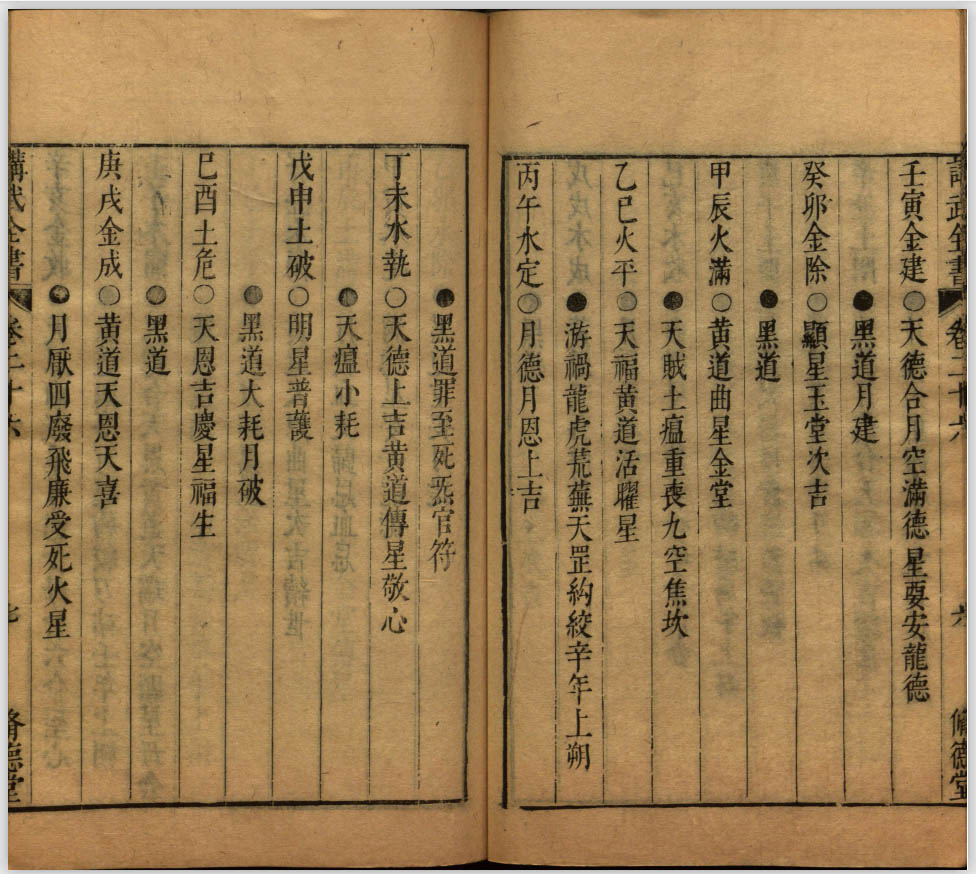 講武全書 卷二十六 六 脩德堂
壬寅金建○天德合月空滿德星要安龍德
●黑道月建
癸卯金除○顯星玉堂次吉
●黑道
甲辰火滿○黄道曲星金堂
●天賊土瘟重喪九空焦坎
乙巳火平○天福黄道活曜星
●游禍龍虎荒蕪天罡殺辛年上朔
丙午水定○月德月恩上吉
●黑道罪至死炁官符
丁未水執○天德上吉黄道傳星敬心
●天瘟小耗
戊申土破○明星普護
●黑道大耗月破
巳酉土危○天恩吉慶星福生
●黑道
庚戌金成○黄道天恩天喜
●月厭四廢飛廉受死火星
講武全書 卷二十六 七 脩德堂